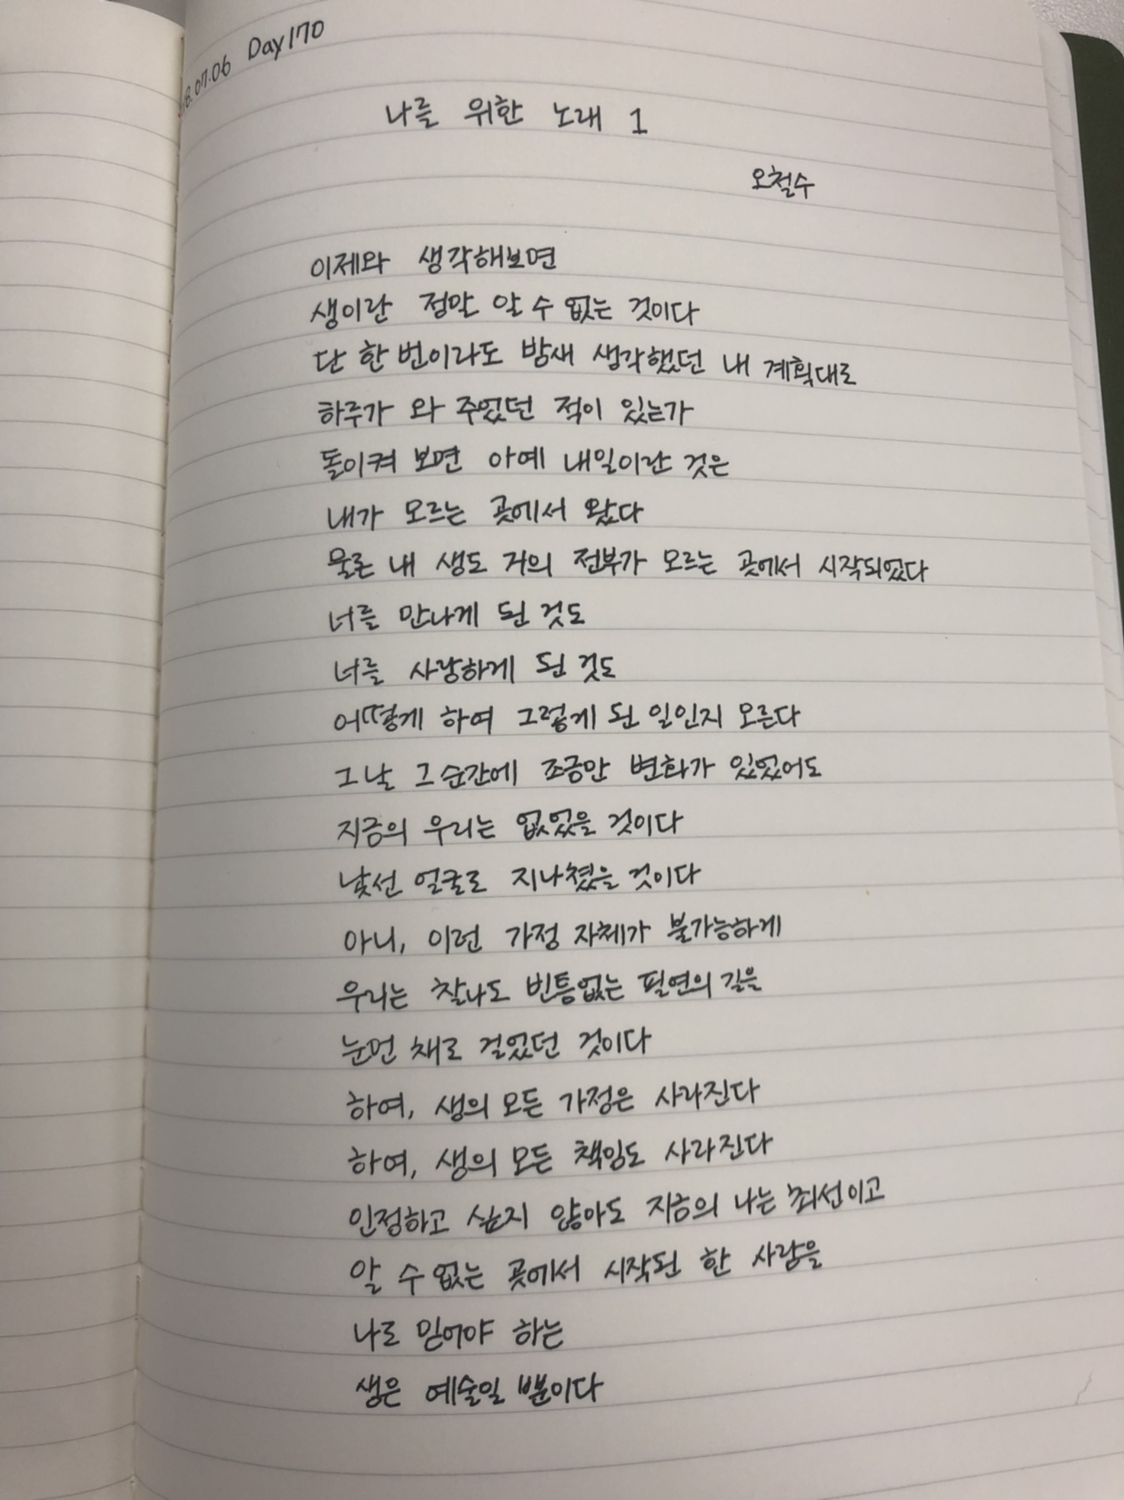 8.07.06 Day170
나를 위한 노래 1
오철수
이제와 생각해보면
생이란 정말 알 수 없는 것이다
단 한번이라도 밤새 생각했던 내 계획대로
하루가 와 주었던 적이 있는가
돌이켜 보면 아예 내일이란 것은
내가 모르는 곳에서 왔다
물론 내 생도 거의 전부가 모르는 곳에서 시작되었다
너를 만나게 된 것도
너를 사랑하게 된 것도
어떻게 하여 그렇게 된 일인지 모른다
그날 그 순간에 조금만 변화가 있었어도
지금의 우리는 없었을 것이다
낯선 얼굴로 지나쳤을 것이다
아니, 이런 가정 자체가 불가능하게
우리는 찰나도 빈틈없는 필연의 길을
눈먼 채로 걸었던 것이다
하여, 생의 모든 가정은 사라진다
하여, 생의 모든 책임도 사라진다
인정하고 싶지 않아도 지금의 나는 최선이고
알 수 없는 곳에서 시작된 한 사람을
나로 믿어야 하는
생은 예술일 뿐이다